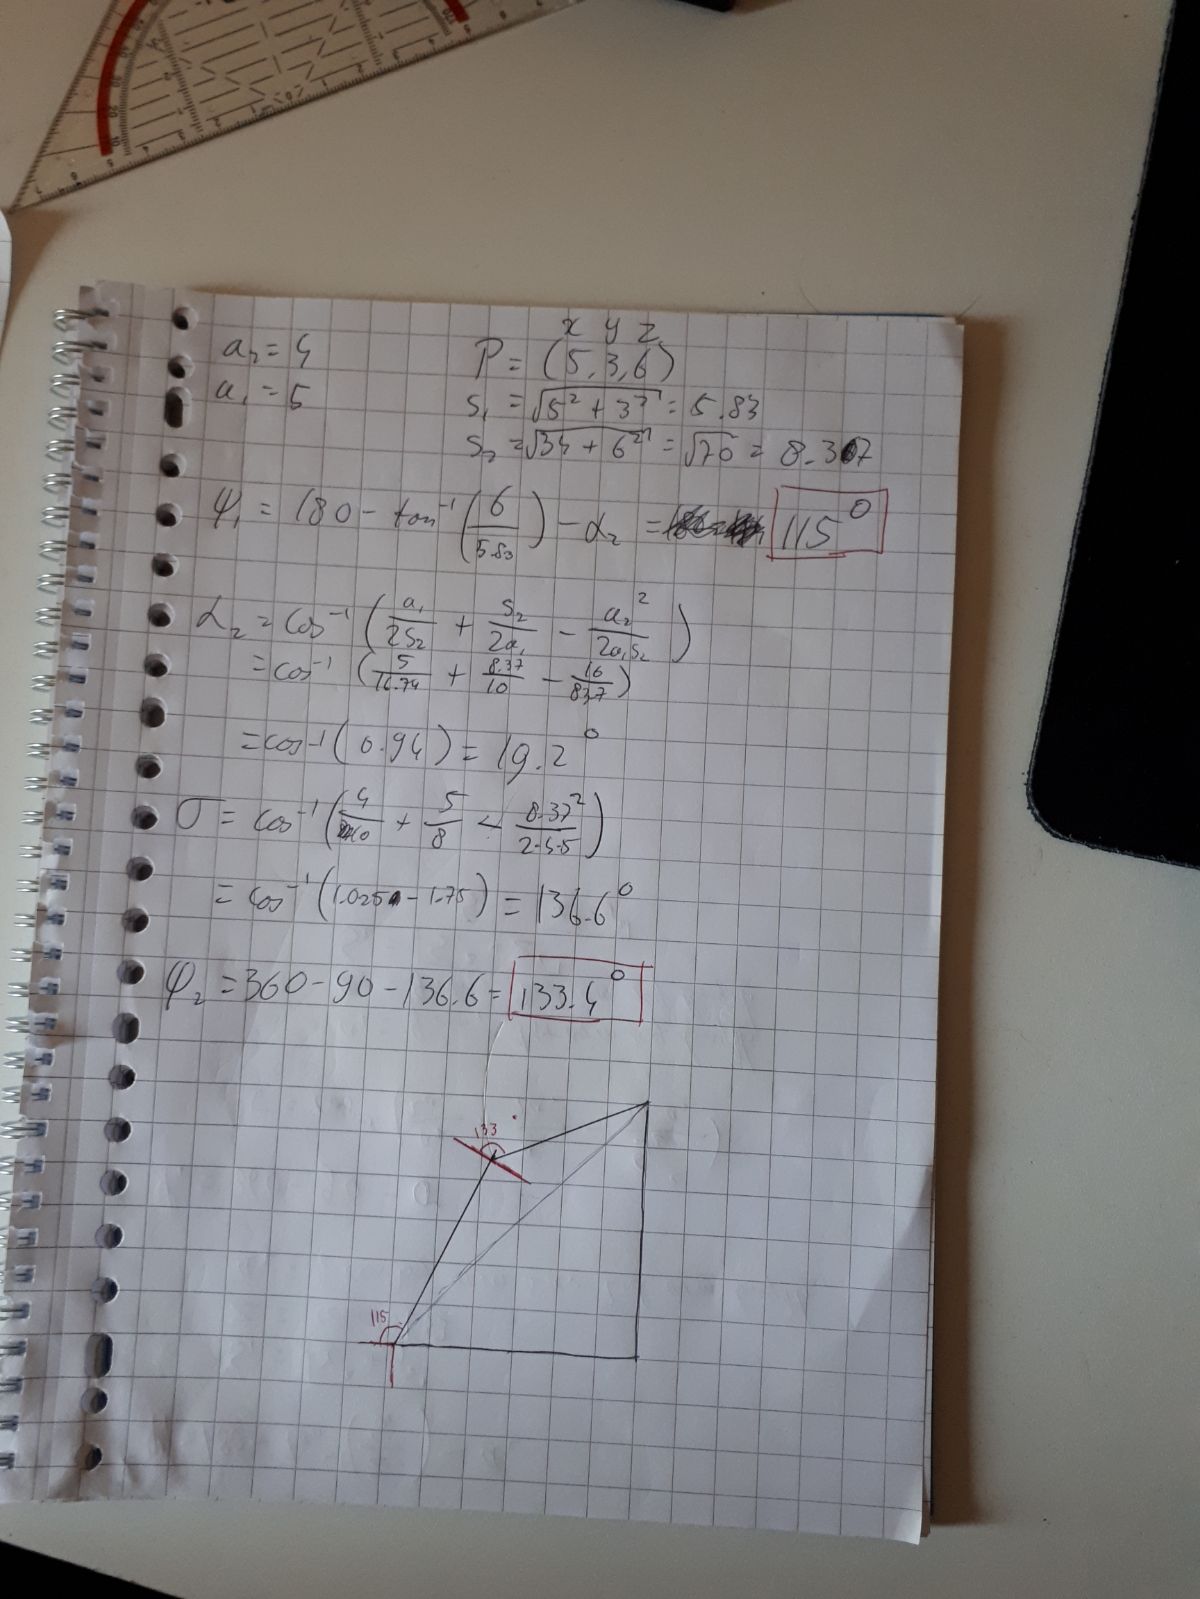 x y z
a₂ = 4 P = (5, 3, 6)
a₁ = 5 s₁ = √(5² + 3²) = 5.83
s₂ = √(34 + 6²) = √70 = 8.37
φ₁ = 180 - tan⁻¹(6/5.83) - α₂ = 115°
α₂ = cos⁻¹(a₁/2s₂ + s₂/2a₁ - a₂²/2a₁s₂)
= cos⁻¹(5/16.74 + 8.37/10 - 16/83.7)
= cos⁻¹(0.94) = 19.2°
σ = cos⁻¹(4/10 + 5/8 - 8.37²/2·4·5)
= cos⁻¹(1.025 - 1.75) = 136.6°
φ₂ = 360 - 90 - 136.6 = 133.4°
133
115